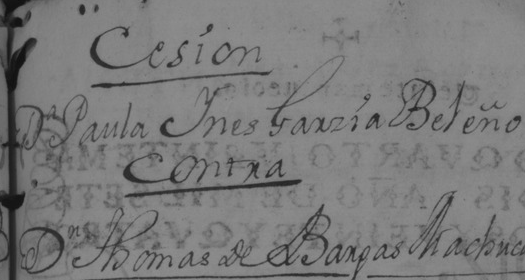 Cesion
Dª Paula Ines Garzia Beleño
Contra
Dn Thomas de Bargas Machuca